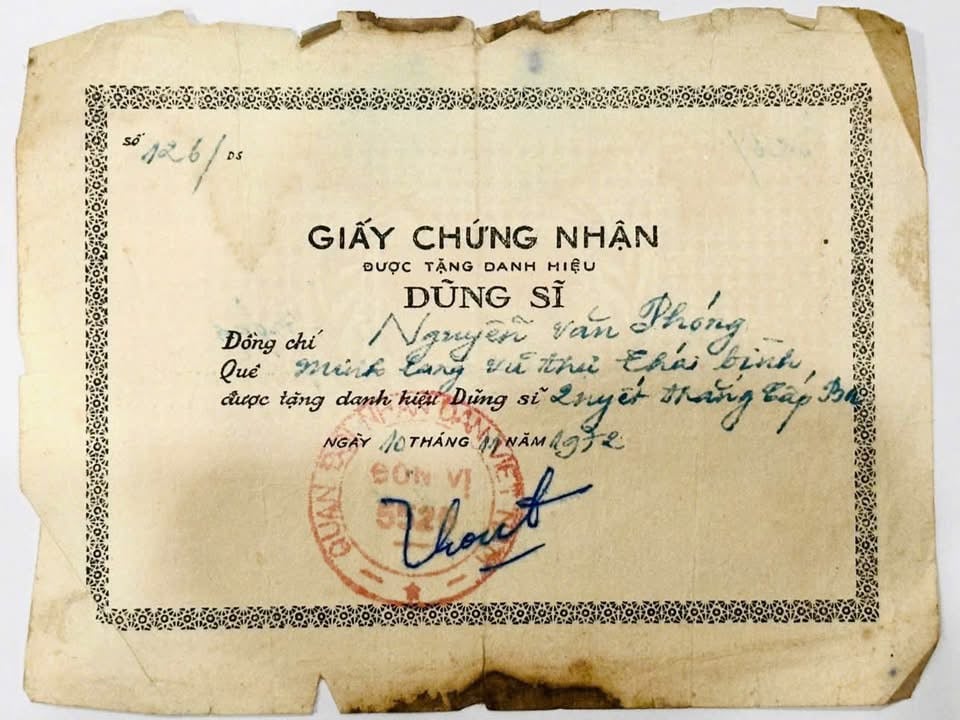 SỐ 126/ DS
GIẤY CHỨNG NHẬN
ĐƯỢC TẶNG DANH HIỆU
DŨNG SĨ
Đồng chí Nguyễn Văn Phóng
Quê Minh Lang Vũ thư Thái bình
được tặng danh hiệu Dũng sĩ Quyết thắng Cấp Ba
NGÀY 10 THÁNG 11 NĂM 1972
QUÂN ĐỘI NHÂN DÂN VIỆT NAM
ĐƠN VỊ